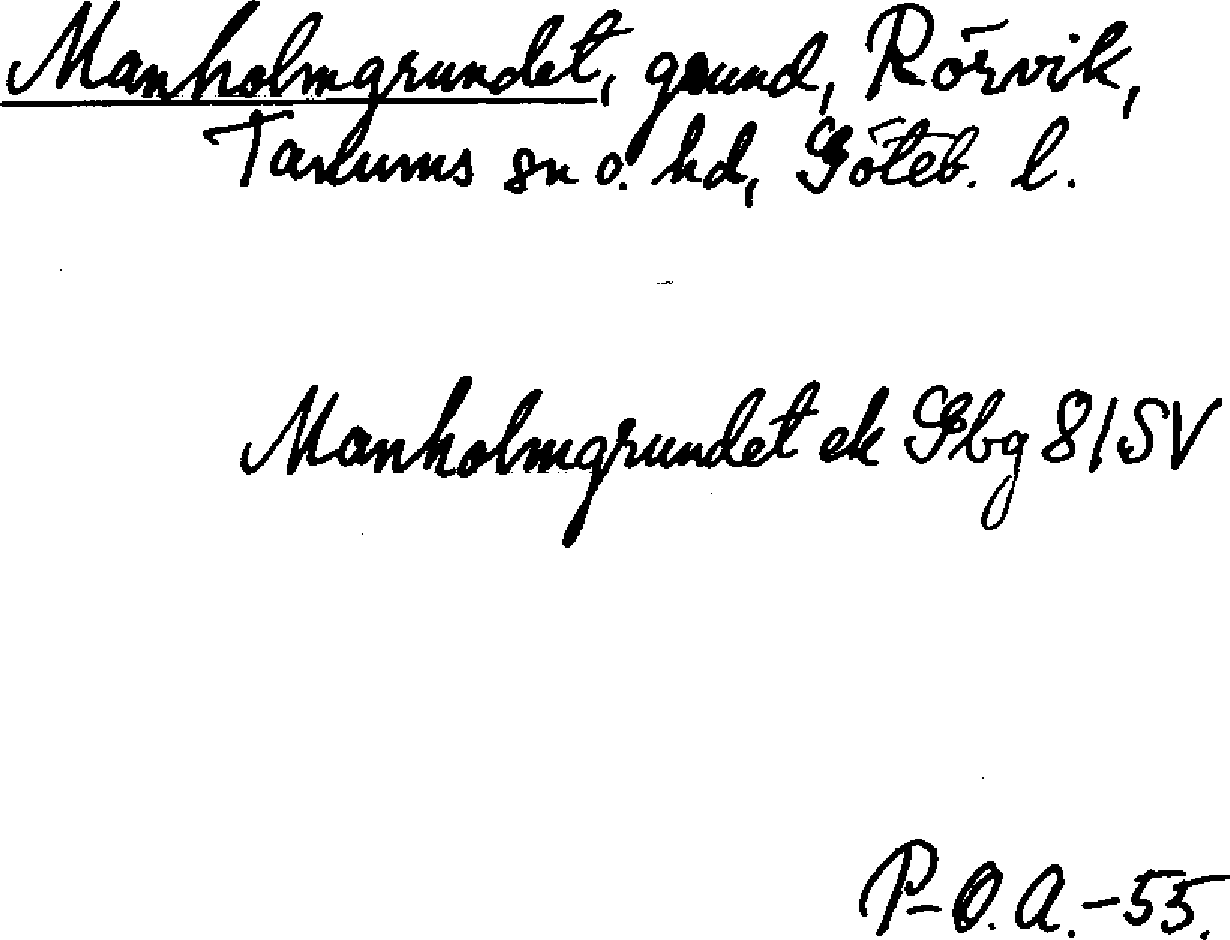 Manholmgrundet, grund, Rörvik,
Tanums sn o. hd, Göteb. l.
Manholmgrundet ek Gbg 8/SV
P-O.A.-55.